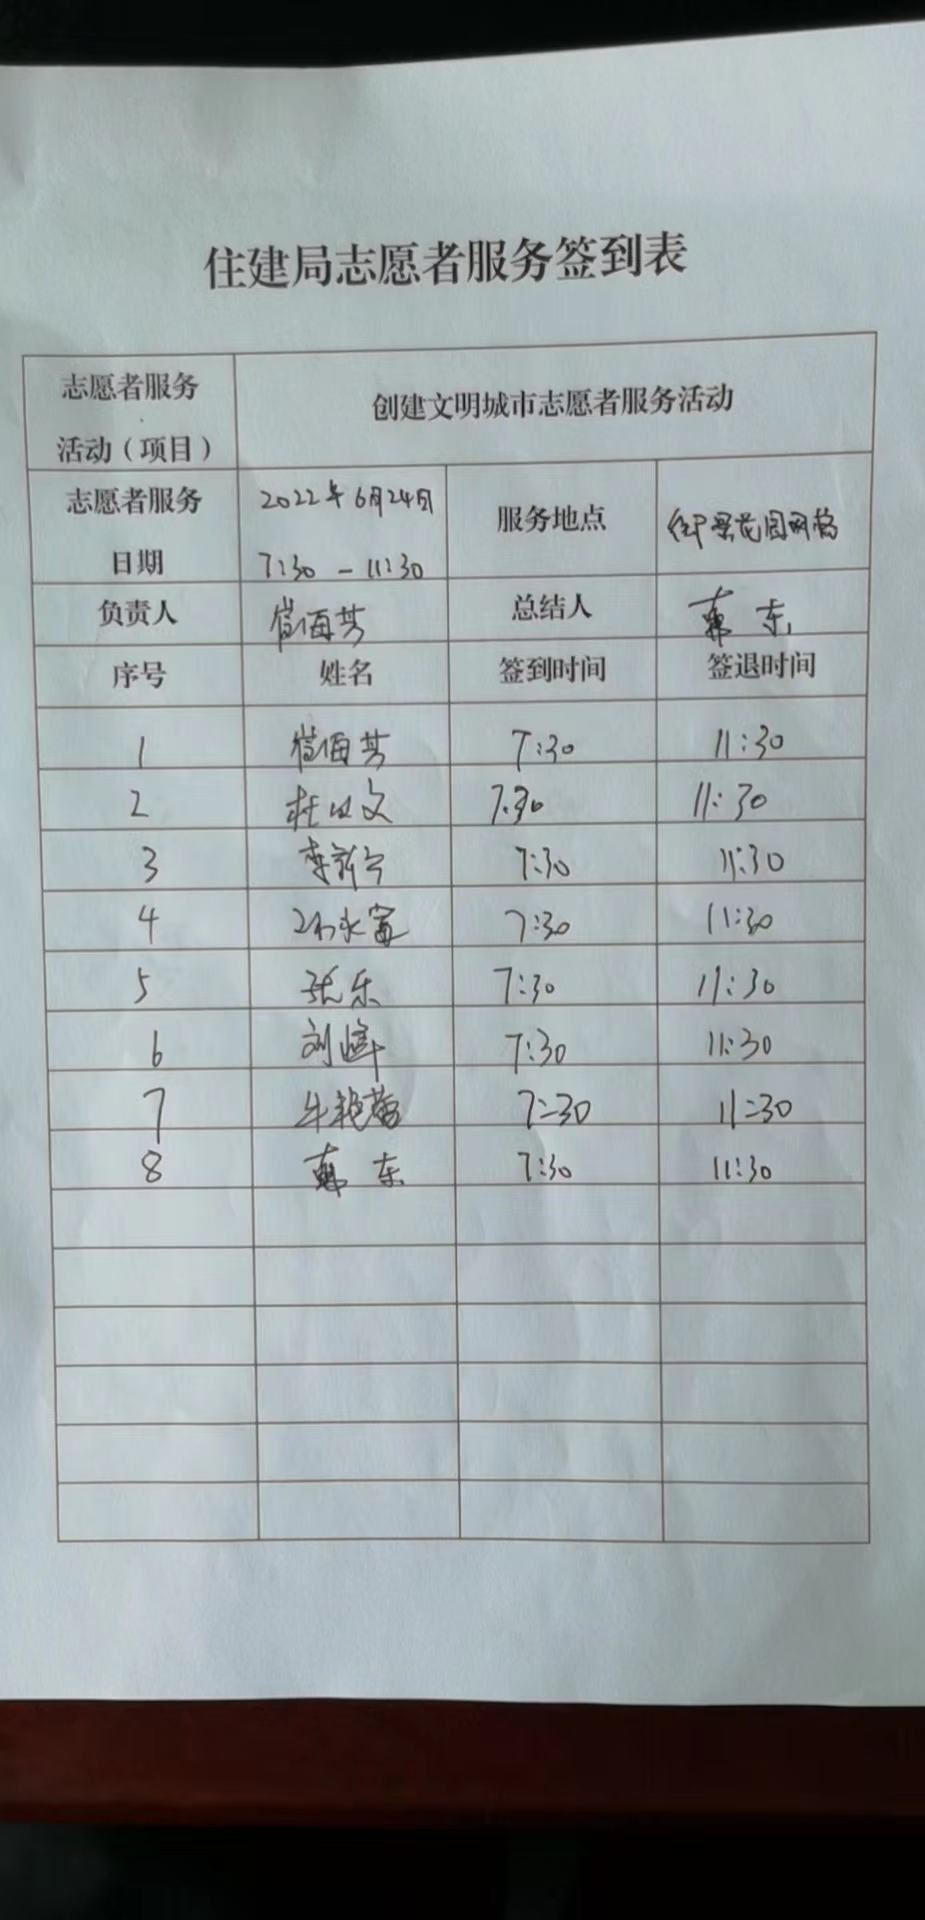 住建局志愿者服务签到表
志愿者服务 活动（项目） 创建文明城市志愿者服务活动
志愿者服务 日期 2022年6月24日 7:30 - 11:30 服务地点 花园网格
负责人 总结人 东
序号 姓名 签到时间 签退时间
1 7:30 11:30
2 杜 文 7:30 11:30
3 李新宁 7:30 11:30
4 永富 7:30 11:30
5 张乐 7:30 11:30
6 刘峰 7:30 11:30
7 牛艳菊 7:30 11:30
8 东 7:30 11:30